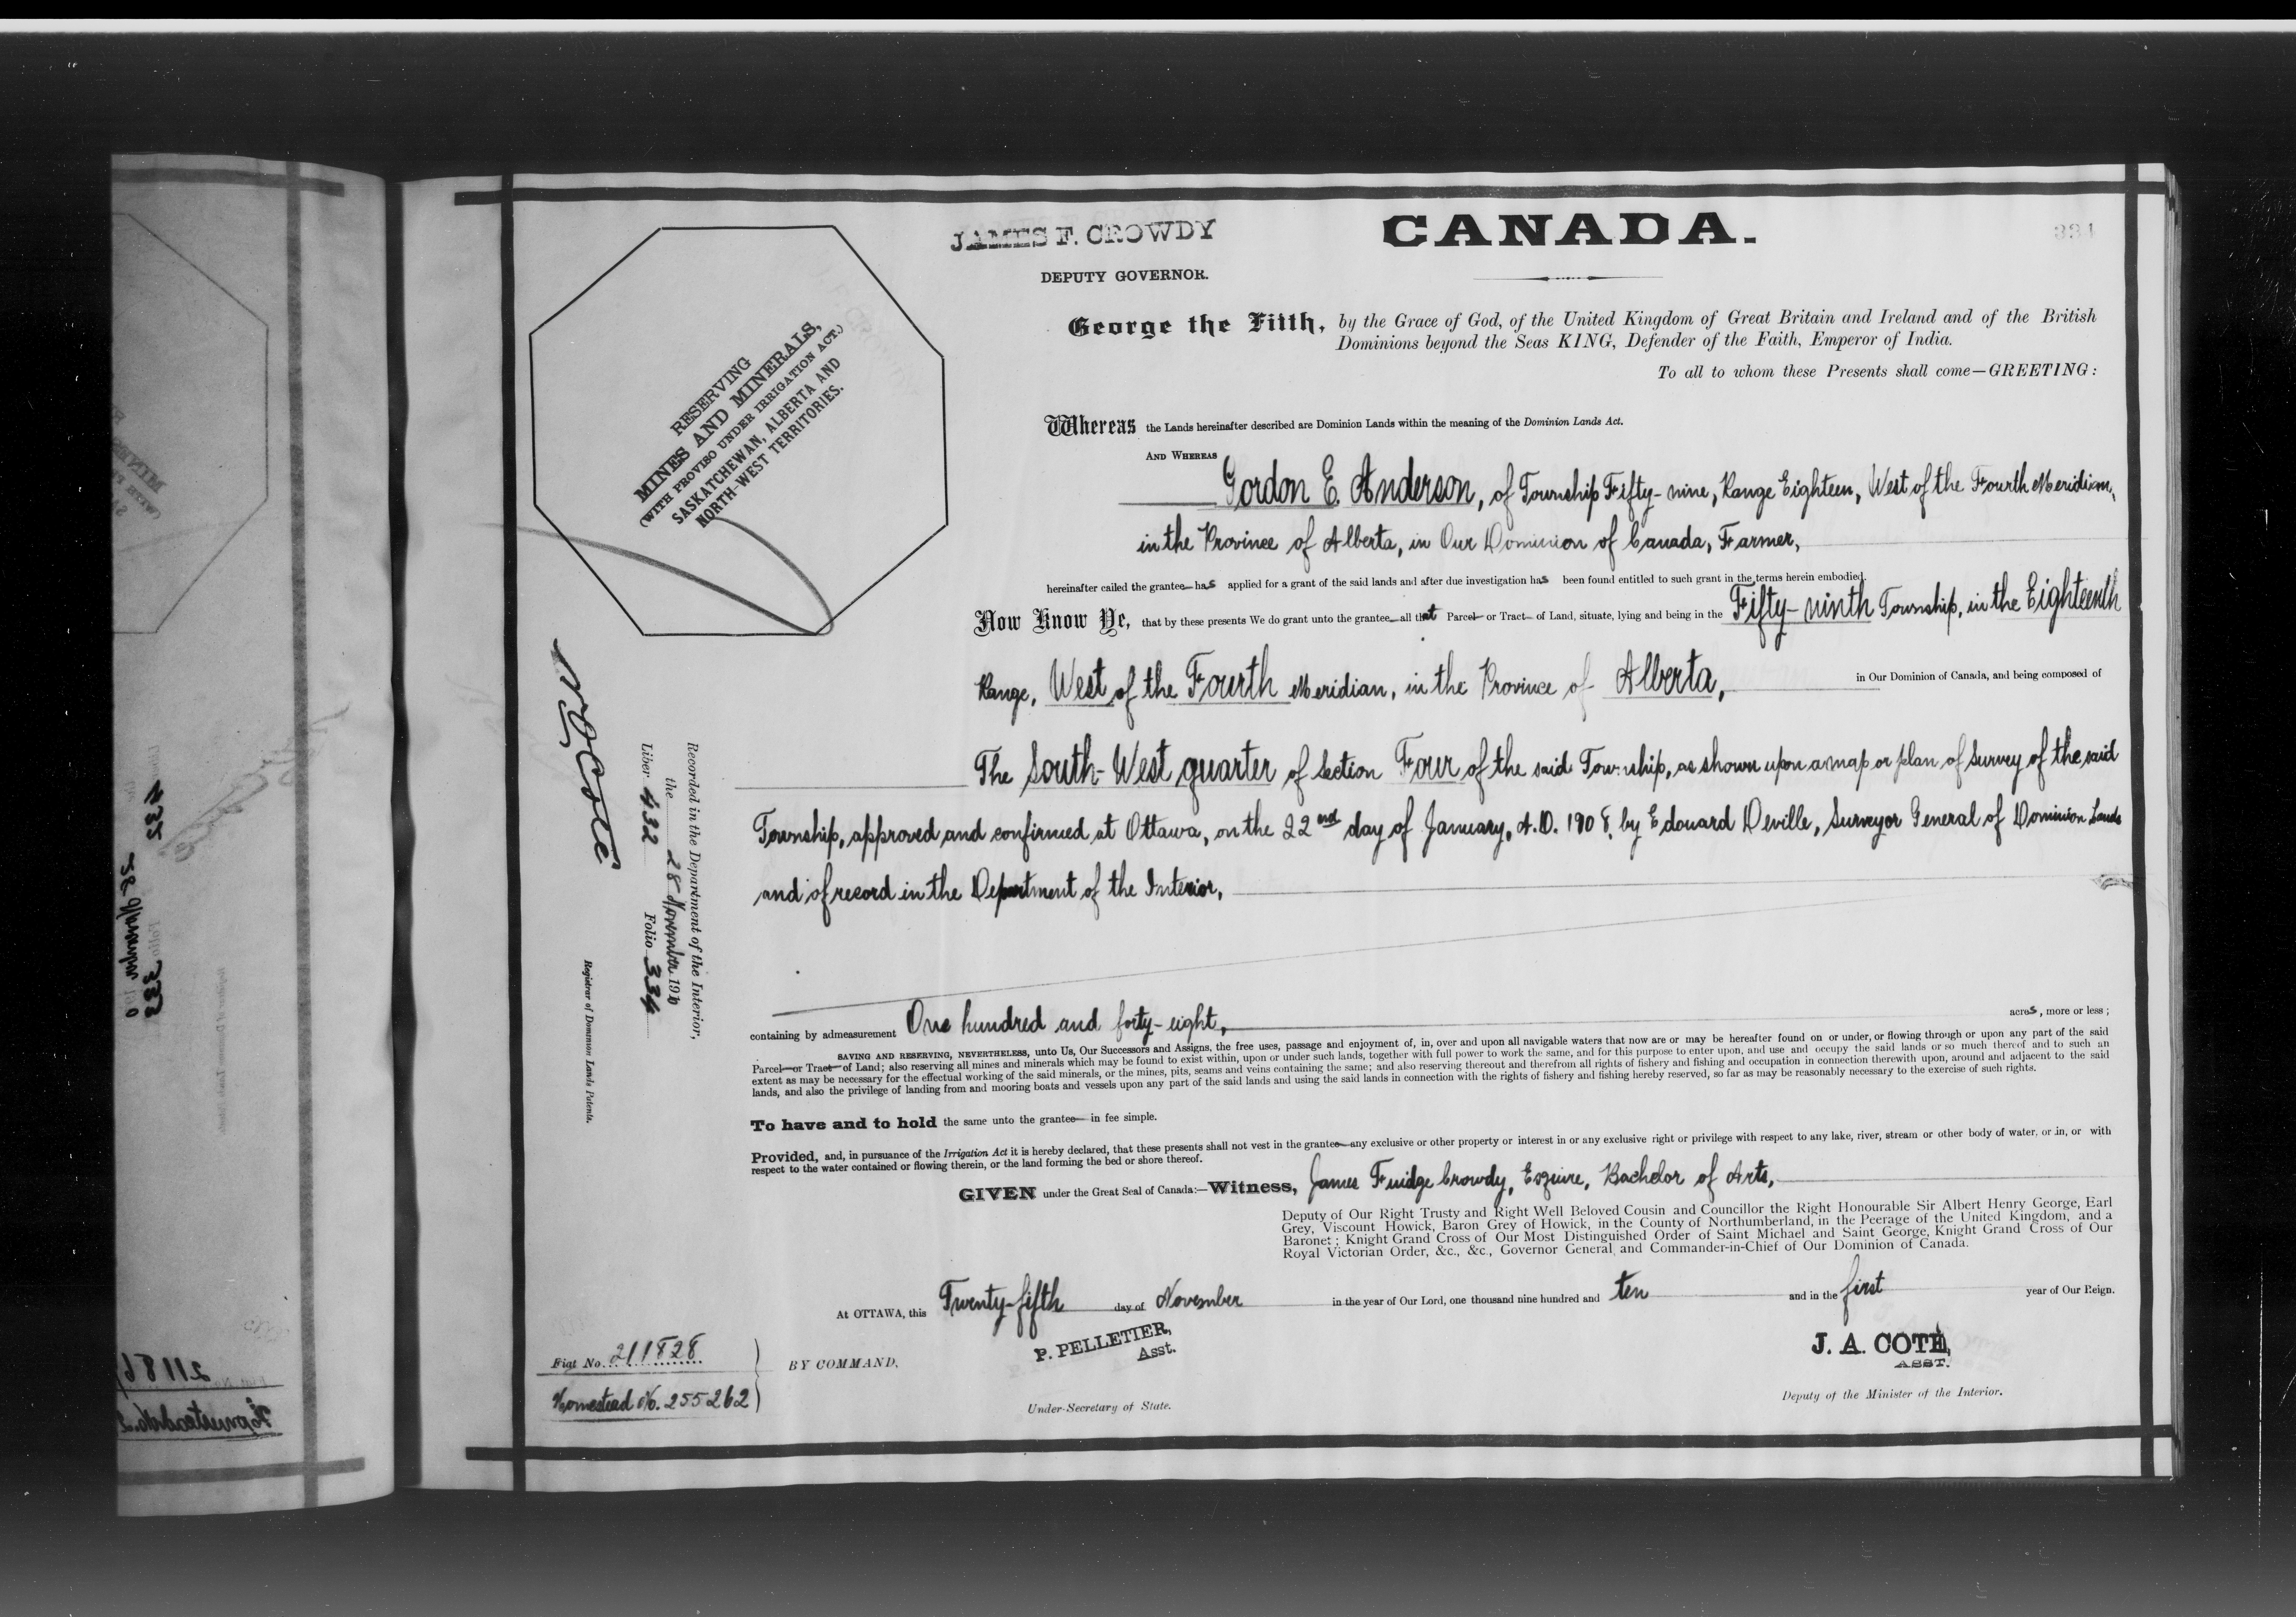 JAMES F. CROWDY
DEPUTY GOVERNOR.
CANADA.
334
RESERVING
MINES AND MINERALS,
(WITH PROVISO UNDER IRRIGATION ACT.)
SASKATCHEWAN, ALBERTA AND
NORTH-WEST TERRITORIES.
George the Fifth, by the Grace of God, of the United Kingdom of Great Britain and Ireland and of the British
Dominions beyond the Seas KING, Defender of the Faith, Emperor of India.
To all to whom these Presents shall come—GREETING:
Whereas the Lands hereinafter described are Dominion Lands within the meaning of the Dominion Lands Act.
AND WHEREAS
Gordon E. Anderson, of Township Fifty-nine, Range Eighteen, West of the Fourth Meridian,
in the Province of Alberta, in Our Dominion of Canada, Farmer,
hereinafter called the grantee has applied for a grant of the said lands and after due investigation has been found entitled to such grant in the terms herein embodied.
Now Know Ye, that by these presents We do grant unto the grantee all that Parcel or Tract of Land, situate, lying and being in the Fifty-ninth Township, in the Eighteenth
Range, West of the Fourth Meridian, in the Province of Alberta, in Our Dominion of Canada, and being composed of
The South-West quarter of Section Four of the said Township, as shown upon a map or plan of Survey of the said
Township, approved and confirmed at Ottawa, on the 22nd day of January, A.D. 1908, by Edouard Deville, Surveyor General of Dominion Lands
and of record in the Department of the Interior,
containing by admeasurement One hundred and forty-eight, acres, more or less;
SAVING AND RESERVING, NEVERTHELESS, unto Us, Our Successors and Assigns, the free uses, passage and enjoyment of, in, over and upon all navigable waters that now are or may be hereafter found on or under, or flowing through or upon any part of the said
Parcel or Tract of Land; also reserving all mines and minerals which may be found to exist within, upon or under such lands, together with full power to work the same, and for this purpose to enter upon, and use and occupy the said lands or so much thereof and to such an
extent as may be necessary for the effectual working of the said minerals, or the mines, pits, seams and veins containing the same; and also reserving thereout and therefrom all rights of fishery and fishing and occupation in connection therewith upon, around and adjacent to the said
lands, and also the privilege of landing from and mooring boats and vessels upon any part of the said lands and using the said lands in connection with the rights of fishery and fishing hereby reserved, so far as may be reasonably necessary to the exercise of such rights.
To have and to hold the same unto the grantee in fee simple.
Provided, and, in pursuance of the Irrigation Act it is hereby declared, that these presents shall not vest in the grantee any exclusive or other property or interest in or any exclusive right or privilege with respect to any lake, river, stream or other body of water, or in, or with
respect to the water contained or flowing therein, or the land forming the bed or shore thereof.
GIVEN under the Great Seal of Canada:—Witness, James Fuidge Crowdy, Esquire, Bachelor of Arts,
Deputy of Our Right Trusty and Right Well Beloved Cousin and Councillor the Right Honourable Sir Albert Henry George, Earl
Grey, Viscount Howick, Baron Grey of Howick, in the County of Northumberland, in the Peerage of the United Kingdom, and a
Baronet; Knight Grand Cross of Our Most Distinguished Order of Saint Michael and Saint George, Knight Grand Cross of Our
Royal Victorian Order, &c., &c., Governor General and Commander-in-Chief of Our Dominion of Canada.
At OTTAWA, this Twenty-fifth day of November in the year of Our Lord, one thousand nine hundred and ten and in the first year of Our Reign.
BY COMMAND,
P. PELLETIER,
Asst.
Under-Secretary of State.
J. A. COTÉ,
ASST.
Deputy of the Minister of the Interior.
Fiat No. 211828
Homestead No. 255262
Recorded in the Department of the Interior,
the 28 November 1910
Liber 432 Folio 334
N O Coté
Registrar of Dominion Lands Patents.